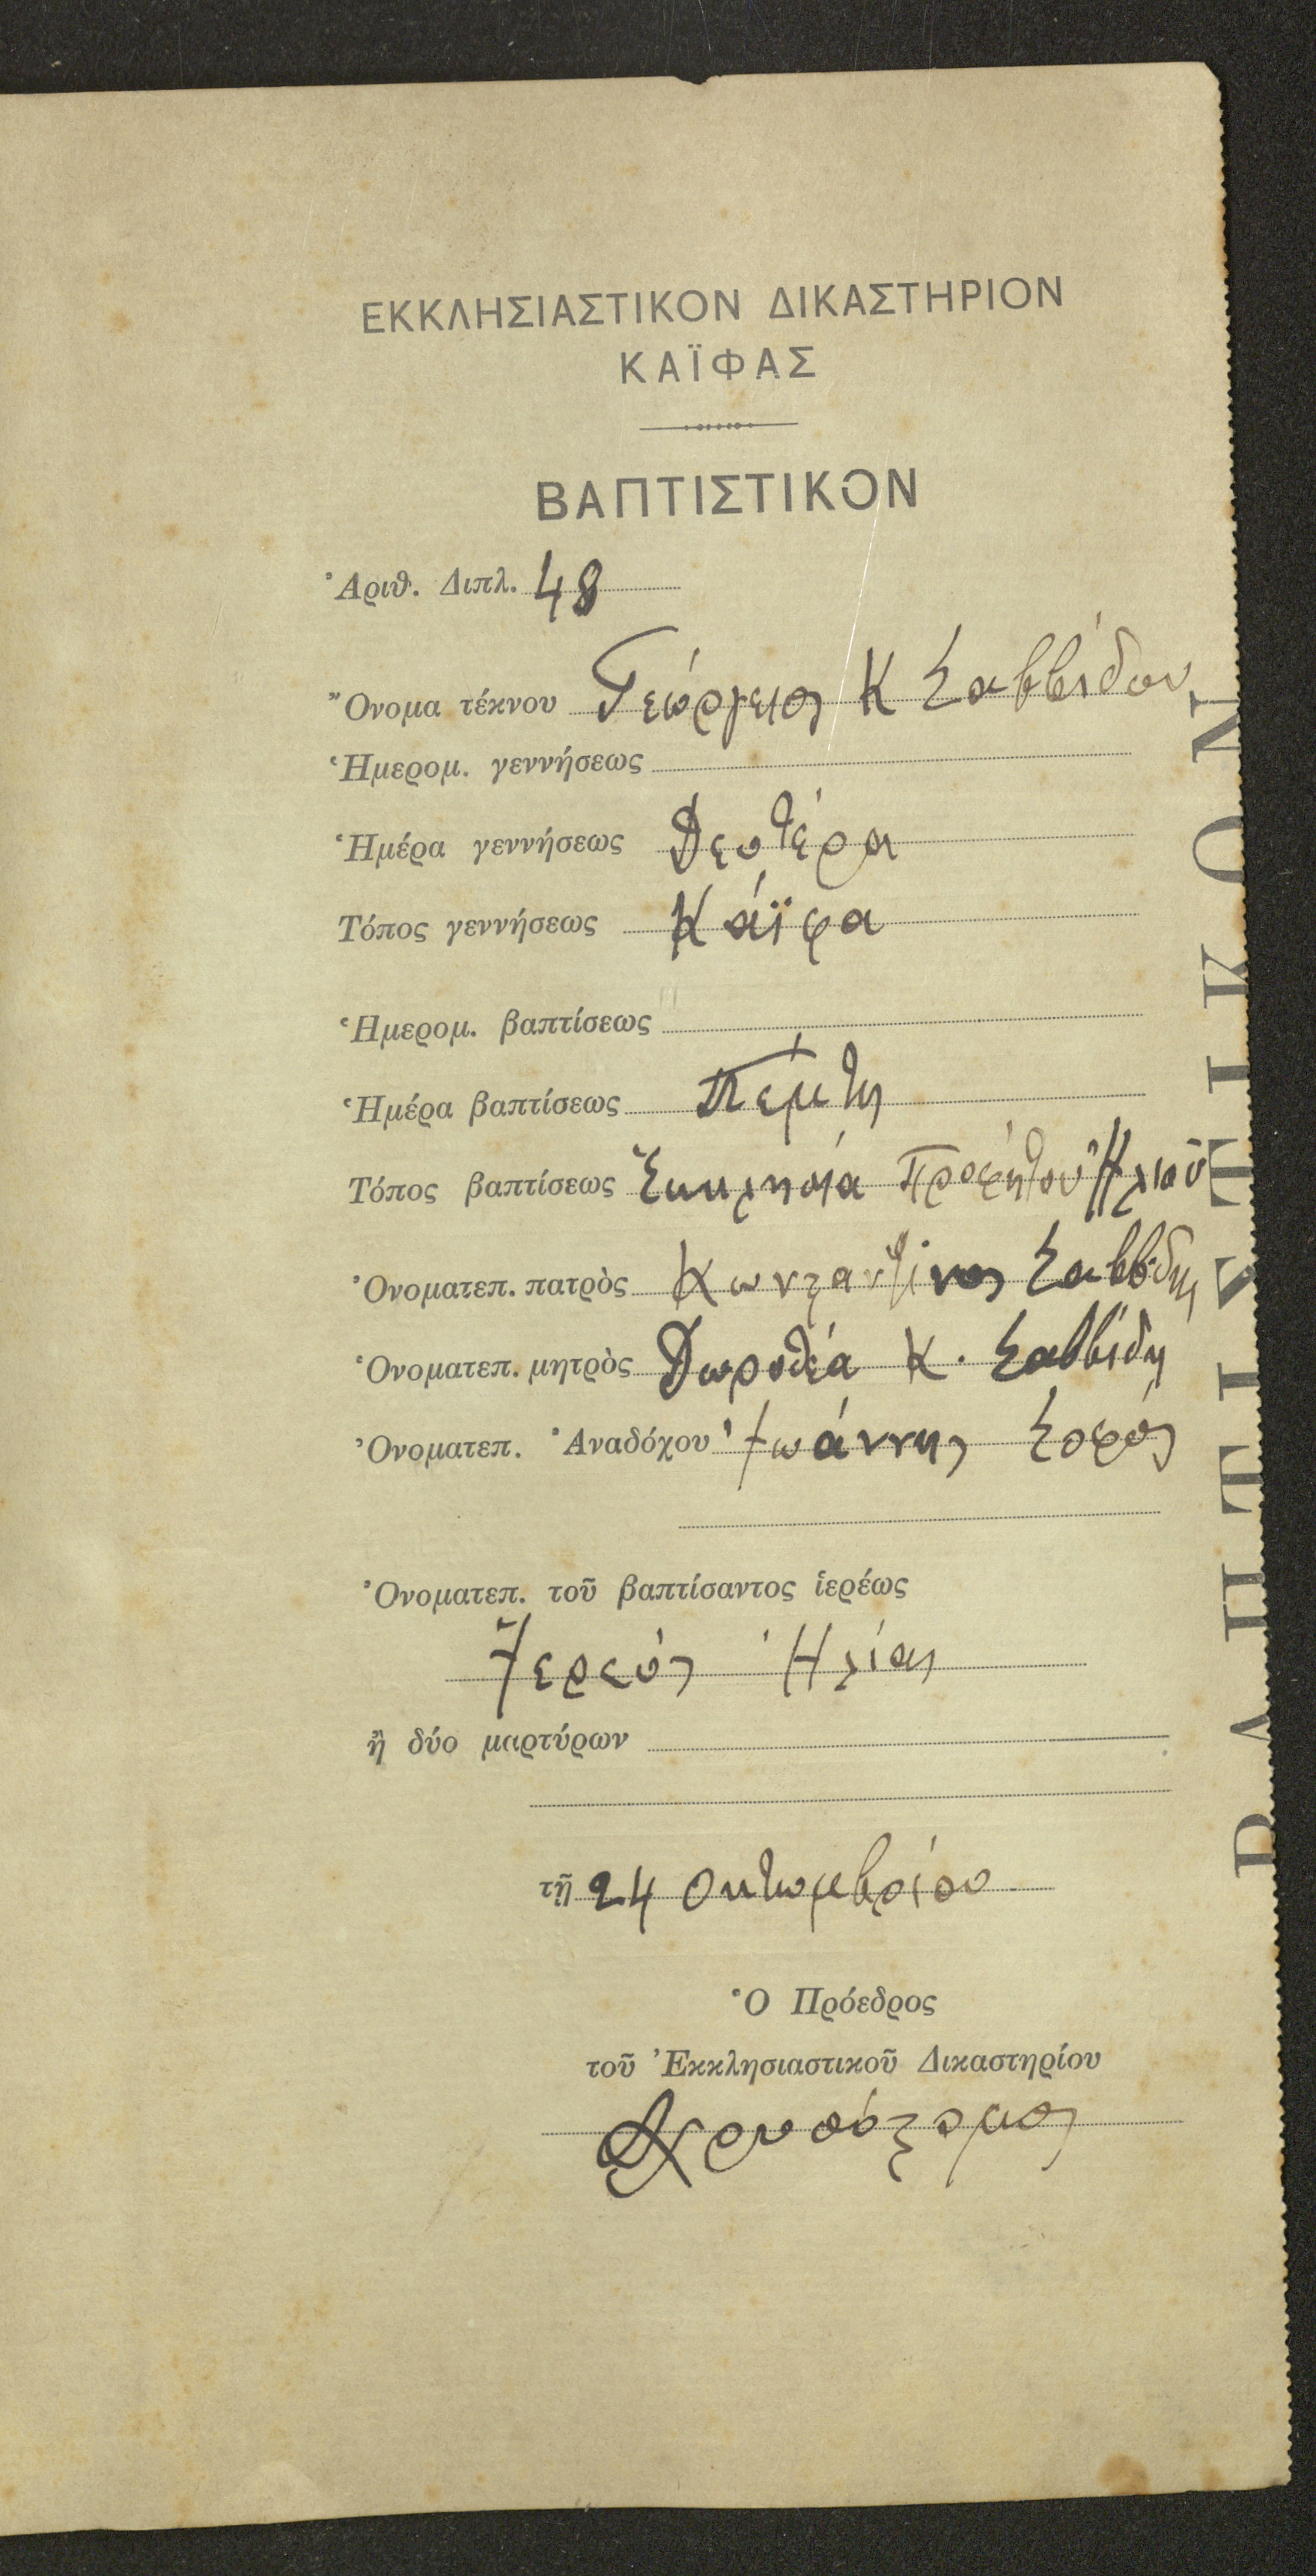 ΕΚΚΛΗΣΙΑΣΤΙΚΟΝ ΔΙΚΑΣΤΗΡΙΟΝ
ΚΑΪΦΑΣ
ΒΑΠΤΙΣΤΙΚΟΝ
Ἀριθ. Διπλ. 48
Ὄνομα τέκνου Γεώργιος Κ Σαββίδου
Ἡμερομ. γεννήσεως
Ἡμέρα γεννήσεως Δευτέρα
Τόπος γεννήσεως Κάϊφα
Ἡμερομ. βαπτίσεως
Ἡμέρα βαπτίσεως Πέμτη
Τόπος βαπτίσεως Ἐκκλησία Προφήτου Ἠλιοῦ
Ὀνοματεπ. πατρὸς Κωνσταντίνος Σαββίδης
Ὀνοματεπ. μητρὸς Δωροθέα Κ. Σαββίδη
Ὀνοματεπ. Ἀναδόχου Ἰωάννης Σοφός
Ὀνοματεπ. τοῦ βαπτίσαντος ἱερέως
Ἱερεύς Ἠλίας
ἢ δύο μαρτύρων
τῇ 24 Οκτωμβρίου
Ὁ Πρόεδρος
τοῦ Ἐκκλησιαστικοῦ Δικαστηρίου
Χρυσόστομος
ΒΑΠΤΙΣΤΙΚΟΝ